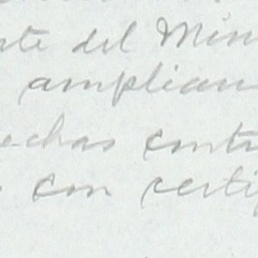 rte del Min
amplian
echas contr
con certi